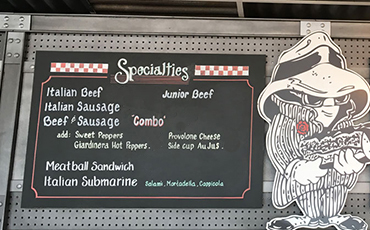 Specialties
Italian Beef Junior Beef
Italian Sausage
Beef & Sausage "Combo"
add: Sweet Peppers Provolone Cheese
Giardinera Hot Peppers. Side cup Au Jus.
Meatball Sandwich
Italian Submarine Salami, Mortadella, Cappicola